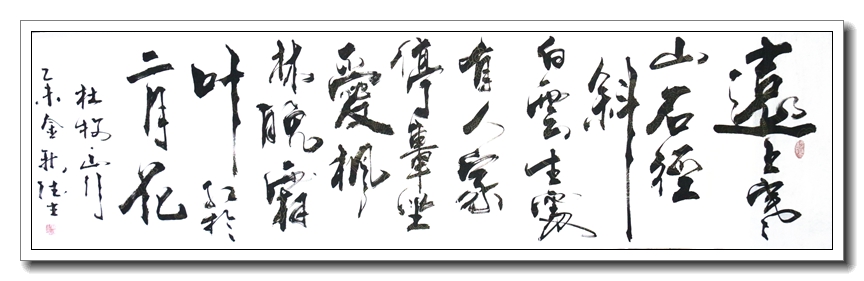 遠上寒
山石徑
斜
白雲生處
有人家
停車坐
愛楓
林晚霜
叶红於
二月花
杜牧山行
乙未金秋